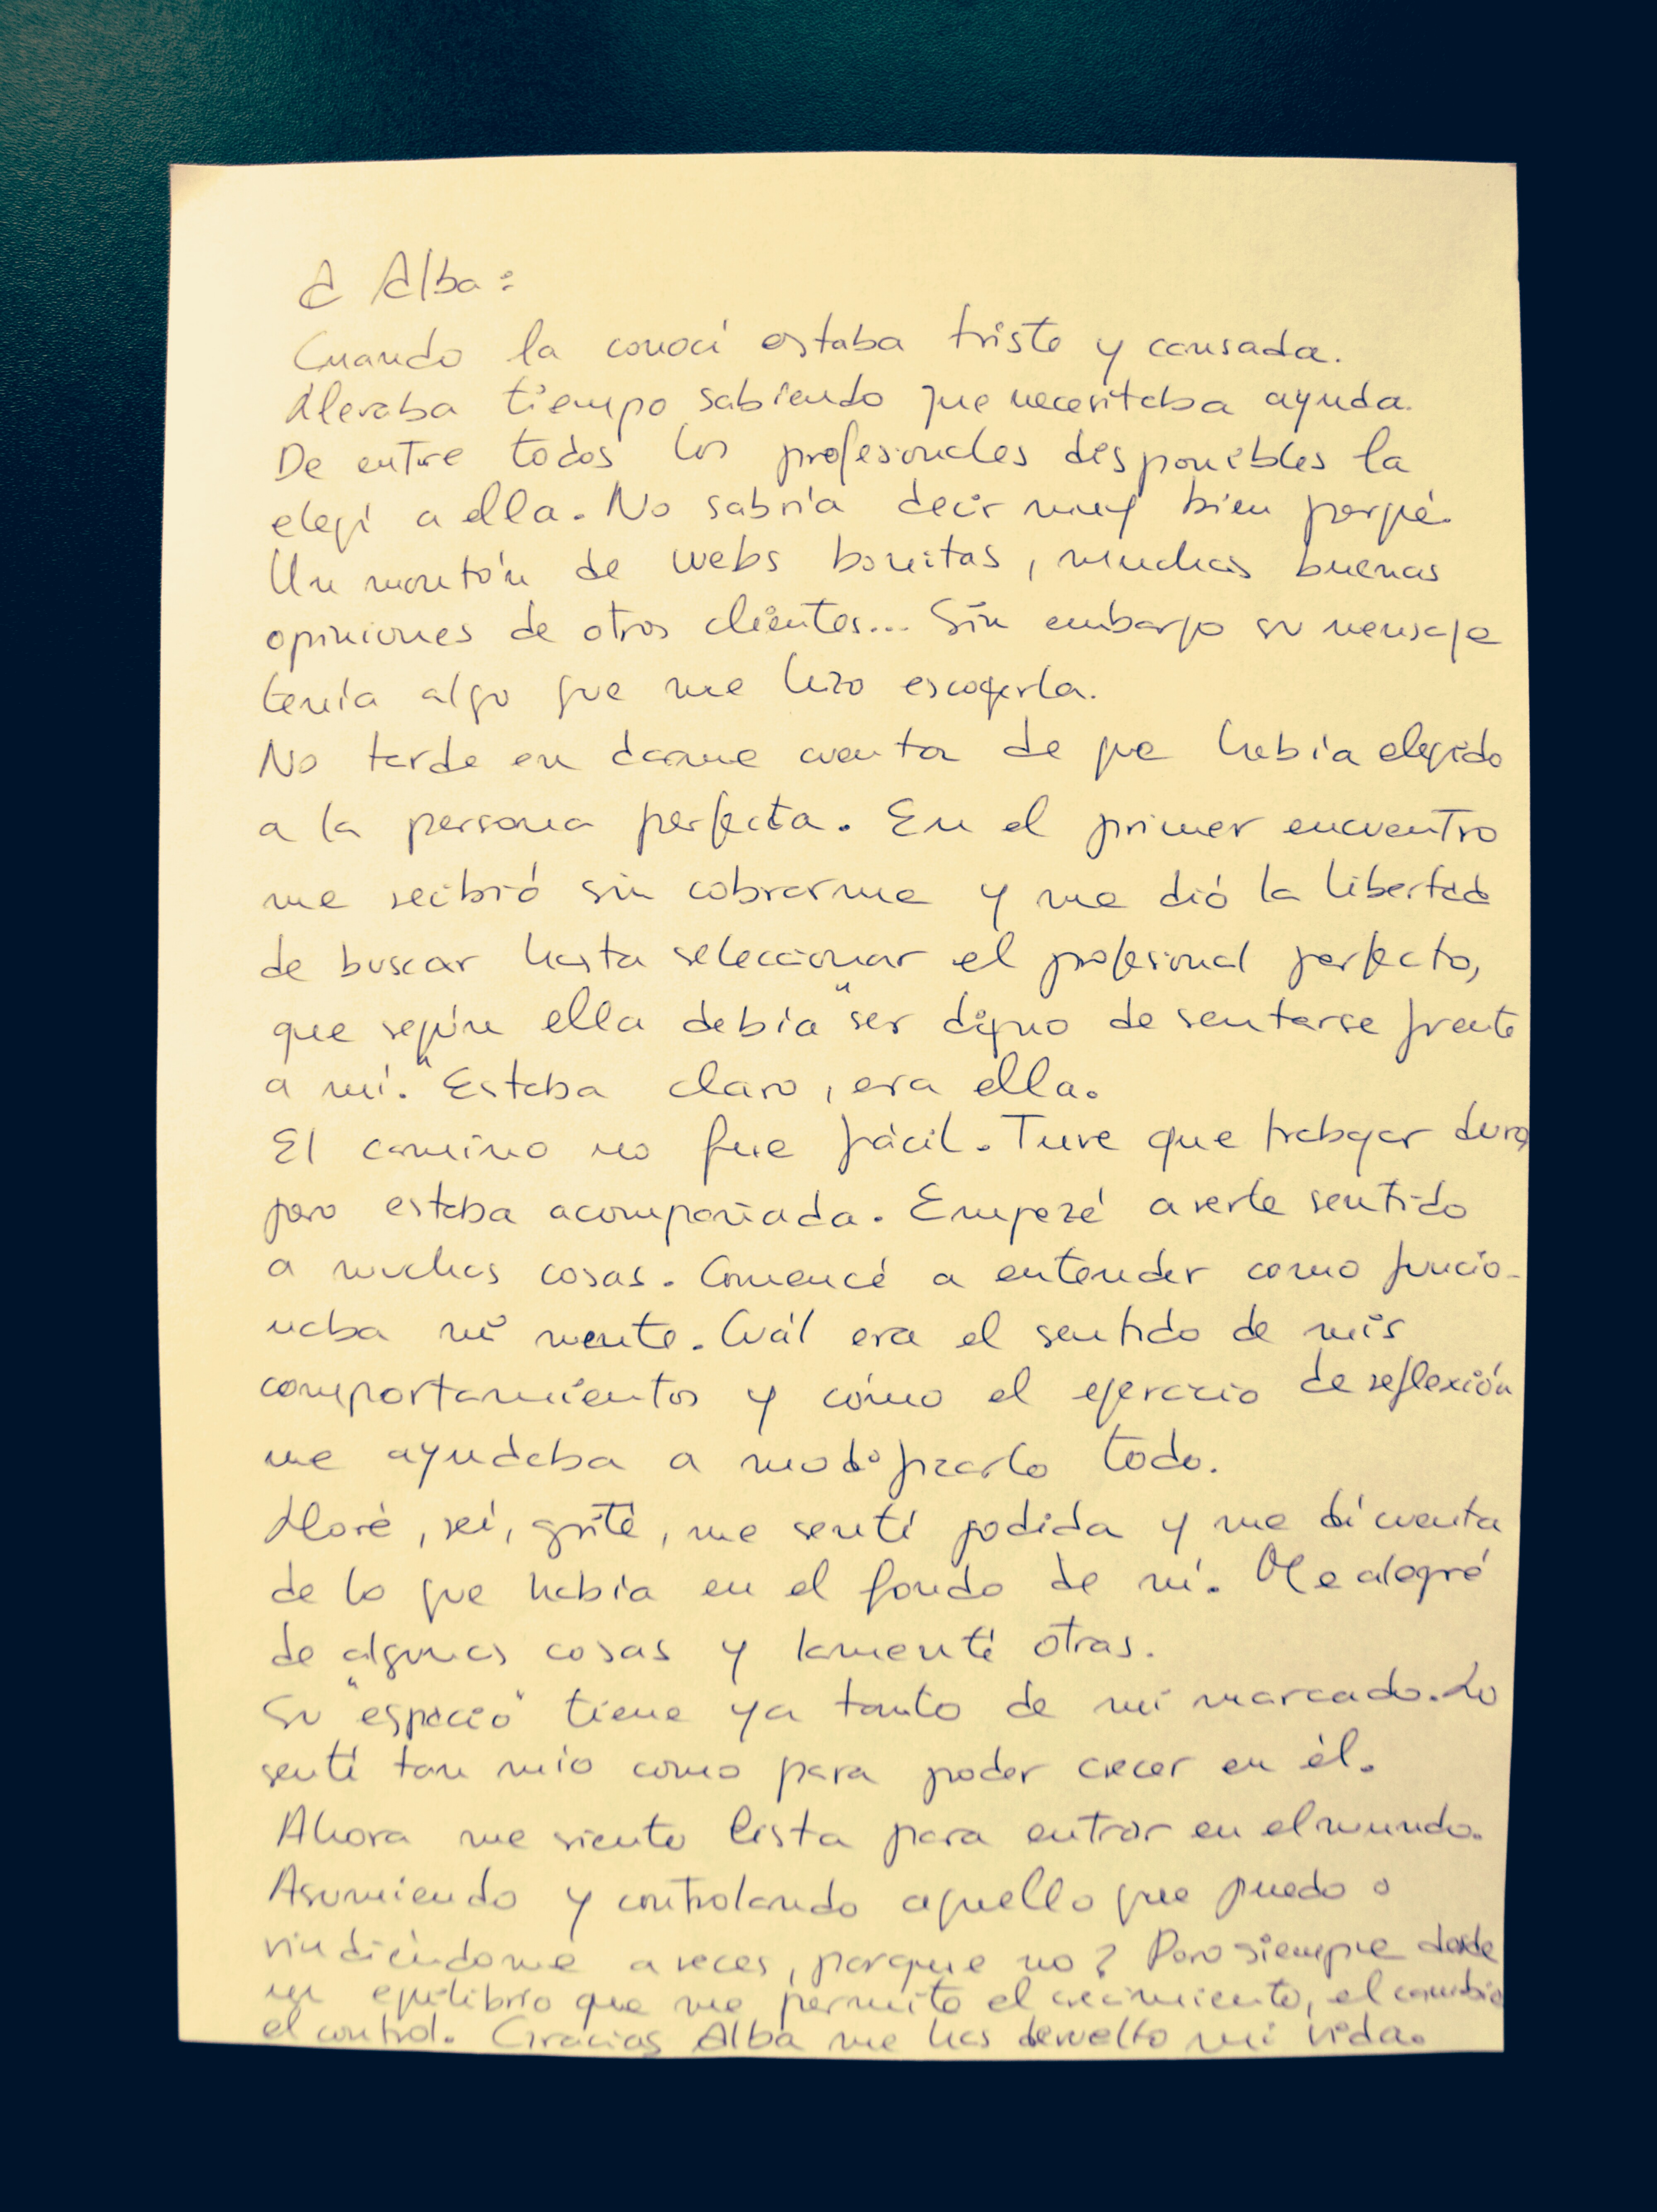 A Alba:
Cuando la conocí estaba triste y cansada.
Llevaba tiempo sabiendo que necesitaba ayuda.
De entre todos los profesionales disponibles la
elegí a ella. No sabría decir muy bien porqué.
Un montón de webs bonitas, muchas buenas
opiniones de otros clientes... Sin embargo su mensaje
tenía algo que me hizo escogerla.
No tarde en darme cuenta de que había elegido
a la persona perfecta. En el primer encuentro
me recibió sin cobrarme y me dió la libertad
de buscar hasta seleccionar el profesional perfecto,
que según ella debía "ser digno de sentarse frente
a mí." Estaba claro, era ella.
El camino no fue fácil. Tuve que trabajar duro,
pero estaba acompañada. Empezé a verle sentido
a muchas cosas. Comencé a entender como funcio-
naba mi mente. Cuál era el sentido de mis
comportamientos y cómo el ejercicio de reflexión
me ayudaba a modificarlo todo.
Lloré, reí, grité, me sentí jodida y me dí cuenta
de lo que había en el fondo de mí. Me alegré
de algunas cosas y lamenté otras.
Su "espacio" tiene ya tanto de mi marcado. Lo
sentí tan mío como para poder crecer en él.
Ahora me siento lista para entrar en el mundo.
Asumiendo y controlando aquello que puedo o
rindiéndome a veces, porque no? Pero siempre desde
un equilibrio que me permite el crecimiento, el cambio
el control. Gracias Alba me has devuelto mi vida.